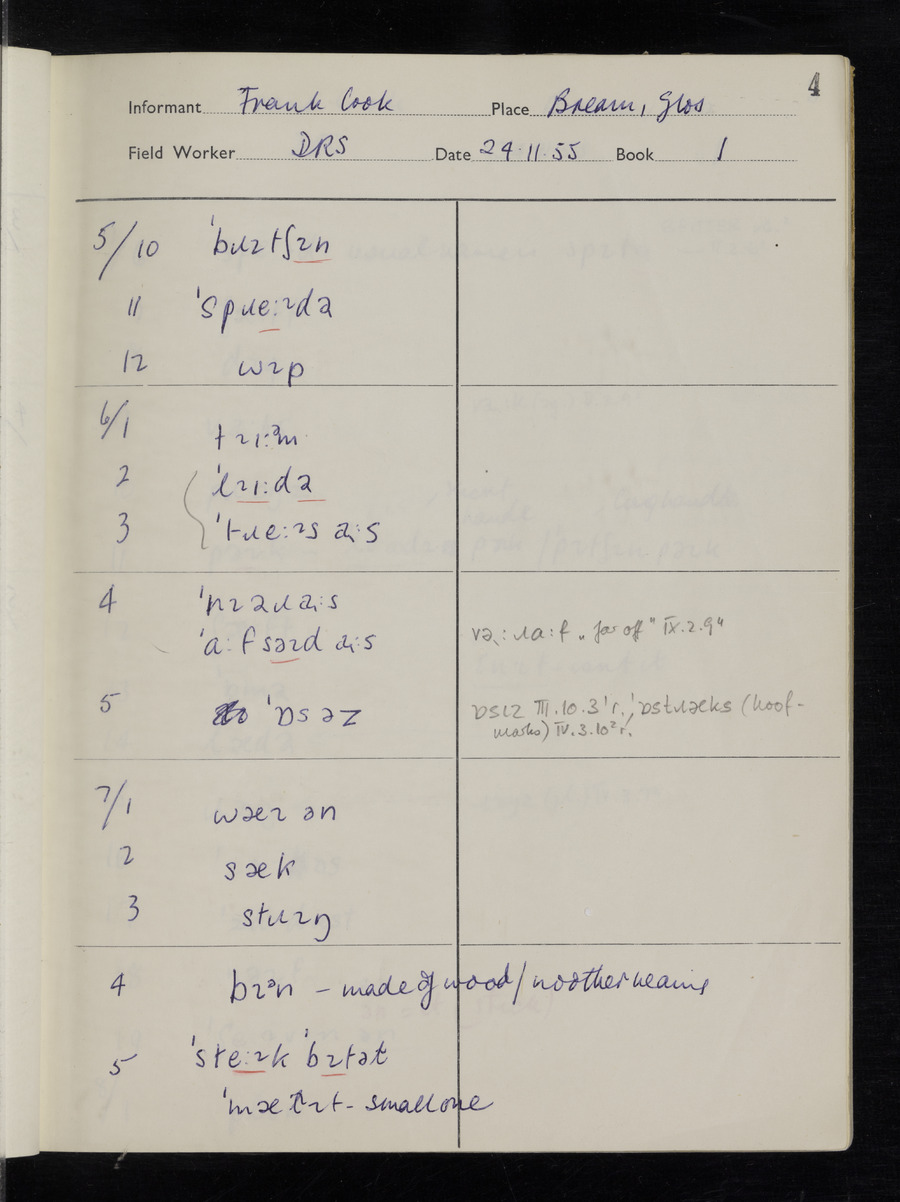 4
Informant Frank Cook Place Bream, Glos
Field Worker DRS Date 24.11.55 Book 1
5/10 ˈbɹɪtʃɪn
11 ˈspɹeːɪdə
12 wɪp
6/1 tɪiːᵊm
2 ˈlɪiːdə
3 ˈtɹeːɪs
4
5 ˈɒsəz
vəː ɹaːf „far off" IX.2.9"
ɒsɪz III.10.3'r., ˈɒstɹæks (hoof-
marks) IV.3.10²r.
7/1 wæɪ ən
2 sæk
3 stɹɪŋ
4 bɪᵊn – made of wood / no other
5 ˈsteːɪk ˈbɪtət
small one